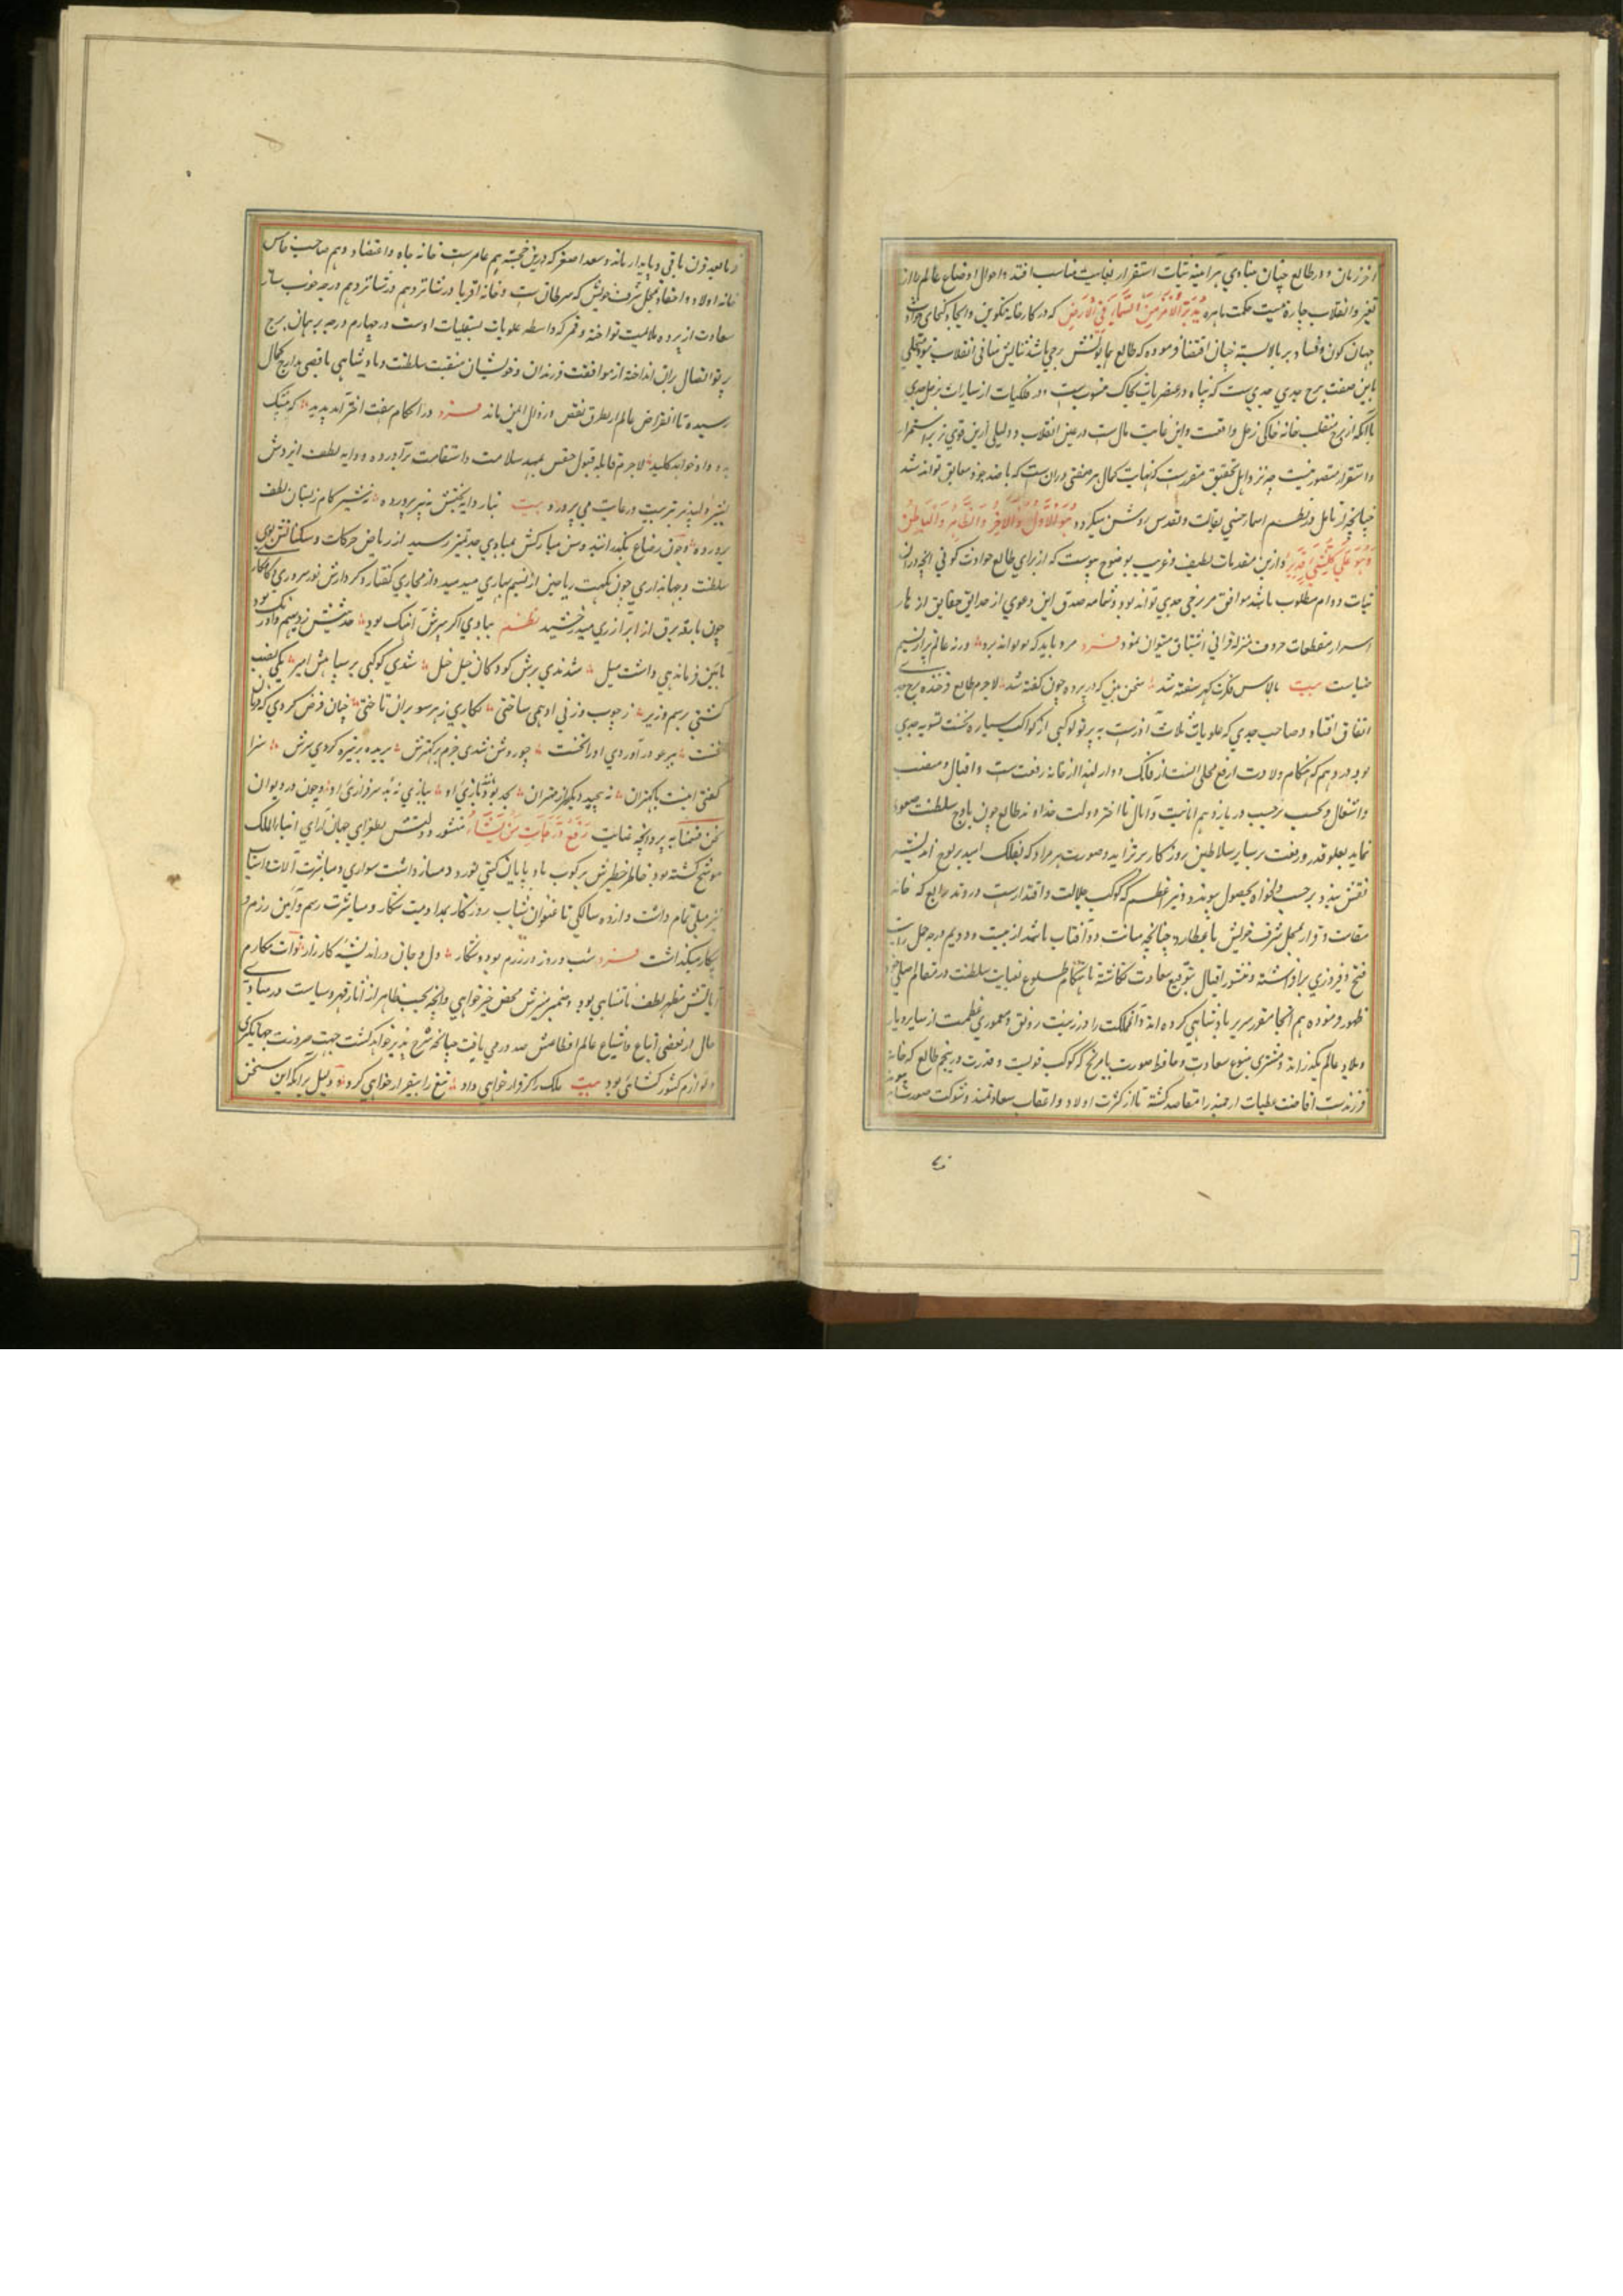 آخر زمان و در طالع چنان مبادی هرآینه ثبات استقرار بغایت مناسب افتد و احوال اوضاع عالم را از
تغیر و انقلاب چاره نیست حکمت باهره یُدَبِّرُ الْاَمْرَ مِنَ السَّمَاءِ اِلَی الْاَرْضِ که در کارخانه تکوین و ایجاد
جهان کون و فساد بر بالا بسته چنان اقتضا فرموده که طالع همایونش برجی باشد ثباتش منافی انقلاب نبود
باین صفت برج جدی جدی ست که بناه در عنصریات بخاک منسوب ست و در فلکیات از سیارات بزحل
باآنکه از بروج منقلب خانه خاکی زحل واقعست و این غایت مال ست در عین انقلاب و دلیلی ازین قوی تر بر استمرار
و استقرار متصور نیست چه نزد اهل تحقیق مقررست که نهایت کمال هر صفتی در آن ست که با ضد خود معانق تواند شد
چنانچه از تامل در نظم اسماء حسنی تعالت و تقدس روشن میکردد هُوَ الْاَوَّلُ وَالْاٰخِرُ وَالظَّاهِرُ وَالْبَاطِنُ
وَهُوَ عَلٰی کُلِّ شَیْءٍ قَدِیْرٌ و ازین مقدمات لطیف و غریب بوضوح پیوست که از برای طالع حوادث کونی آنچه در آن
ثبات و دوام مطلوب باشد موافق تر برجی جدی تواند بود و شمامه صدق این دعوی از حدایق حقایق از هار
اسرار مقطعات حروف منزله قرآنی استنشاق میتوان نمود فرد مرد باید که بو تواند برد ورنه عالم پر از نسیم
صباست بیت بالماس فکرت گهر سفته شد سخن بین که در پرده چون گفته شد لاجرم طالع فرخنده برج جدی
اتفاق افتاد و صاحب جدی که علویات ثلاث آذرست به پرتو کوکبی از کواکب سیاره نخست تسویه جدی
بود در دهم که هنگام ولادت ارفع محلی است از فلک دوار لهذا از خانه رفعت ست و اقبال و منصب
و اشتغال و بحسب ترجیب در یازدهم امانیت و آمال تا اختر دولت خداوند طالع چون باوج سلطنت صعود
نماید بعلو قدر و رفعت بر سایر سلاطین روزکار برتر آید و صورت هر مراد که بفلک امید بر لوح اندیشه
نقش بندد برحسب دلخواه بحصول پیوندد و نیر اعظم که کوکب جلالت و اقتدارست در وتد رابع که خانه
مقامات و قرار بمحل شرف خویش با عطارد چنانچه مباشت و آفتاب باشد از بیست و دویم درجه حمل رایت
فتح و فیروزی برافراشته و منشور اقبال بتوقیع سعادت نگاشته تا هنگام طلوع نعیات سلطنت در متعالم
ظهور فرموده هم آنجا مقر سریر پادشاهی کرده اند و آن مملکت را در زینت رونق و معموری عظمت از سایر دیار
و بلاد عالم بگذراند و مشتری منبع سعادت و حافظ صورت با مریخ که کوکب قویست و قدرت در پنجم طالع که خانه
فرزندست افاضت عطیات ارجمند را متقاصد گشته تا از کثرت اولاد و اعقاب سعادتمند و شوکت صورت
بعد قرن باقی و پایدار ماند و سعد اصغر که درین خجسته هم عامرست خانه جاه و اعتضاد و هم صاحب خامس
خانه اولاد و احفاد بمحل شرف خویش که سرطان ست و خانه اقربا در شانزدهم درجه خوب
سعادت از پرده ملایمت نواخته و قمر که واسطه علویات بسفلیات اوست در چهارم درجه برهمان برج
پرتو اتصال بران انداخته از موافقت فرزندان و خویشان منقبت سلطنت و پادشاهی باقصی مدارج کمال
رسیده تا انقراض عالم از طرق نقص و زوال ایمن ماند فرد در احکام هفت اختر آمد پدید که
بدو داد خواهد کلید لاجرم قابله قبول حفس بمهد سلامت و استقامت برآورده و دایه لطف ایزدش
بشیر دلپذیر تربیت و رعایت می پرورد بیت بناز دایه بختش بنپرورده نه شیر کام ز پستان لطف
پرورده و چون رضاع بگذرانید و سن مبارکش بمبادی حد تمیز رسید از ریاض حرکات و سکناتش بوی
سلطنت و جهانداری چون نکهت ریاحین از نسیم بهاری میدمید و از مجاری گفتار و کردارش نور سروری و کامکاری
چون بارقه برق از ابر آزاری میدرخشید نظم ببازی اگر پرش آهنگ بود حدیثش ز دیهیم و اورنک بود
بآیین فرماندهی داشت میل شدندی برش کودکان خیل خیل شدی کودکی بر سپاهش امیر یکی بنصب
گشتی برسم وزیر ز چوب و ز نی ادهمی ساختی سکاری ز هر سو بران تاختی چنان فرض کردی که
گفت ببر عود در آوردی او را نخست چو روشن شدی جرم بر کمترش بریده بنیزه کردی سرش سزا
گفتی اینست با کهتران نه پیچید دیگر از مهتران بجد بود بازی او ببازی نه بد سرفرازی او و چون در دیوان
نحن قسمنا به پروانچه عنایت نَرْفَعُ دَرَجَاتٍ مَنْ نَشَاءُ منشور دولتش بطغرای جهان آرای انما الملک
موشح گشته بود خاطر خطیرش برکوب باد پایان گیتی نورد و مسازداشت سواری و مباشرت آلات و اسباب
نبرد میلی تمام داشت و از ده سالگی تا عنوان شباب روزکار بمداومت شکار و مباشرت رسم و آیین رزم و
پیکار میگذاشت فرد شب و روز در رزم بود و شکار دل و جان در اندیشه کارزار ذات مکارم
آیاتش مظهر لطف نامتناهی بود و ضمیر منیرش محض خیرخواهی و آنچه بحسب ظاهر از آثار قهر و سیاست در مبادی
حال از بعضی اتباع و اشیاع عالم افطامش صدور می یافت چنانچه شرح پذیر خواهد گشت جهت ضرورت جهانگیری
و لوازم کشورگشائی بود بیت ملک را گر قرار خواهی داد تیغ را بیقرار خواهی کرد و دلیل برآنکه این سخن